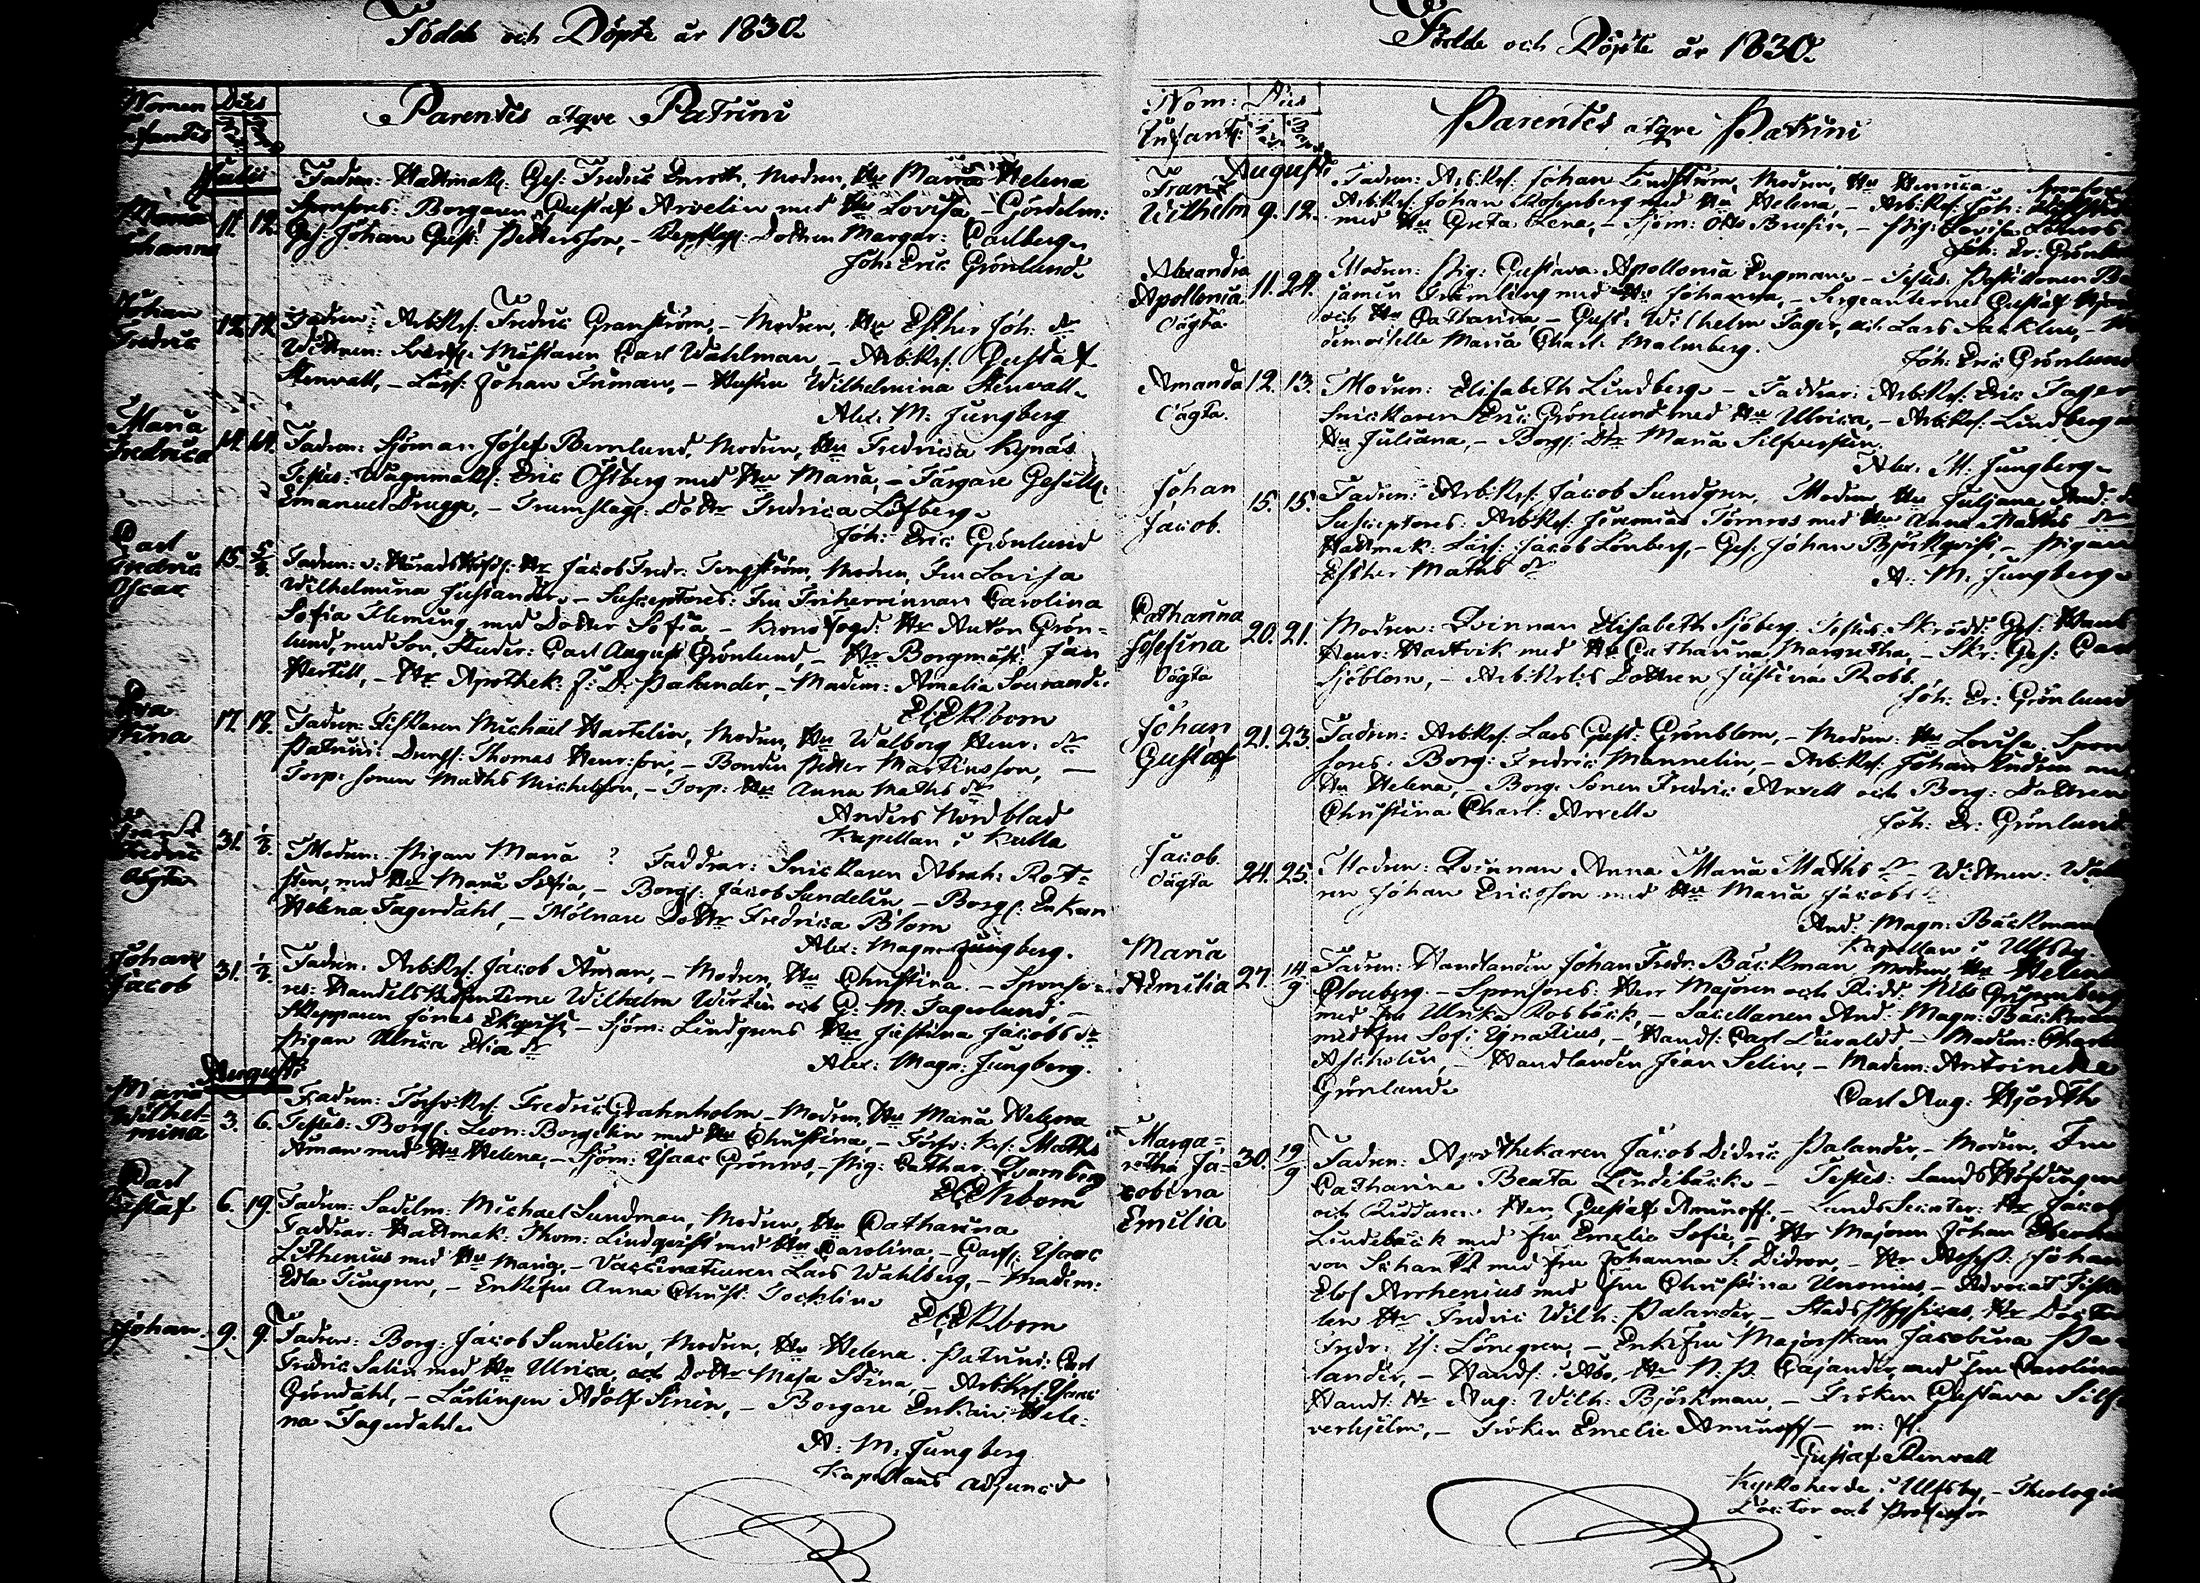 Födde och Döpte år 1830.
Nomen Dies Parentes atqve Patrini
Infantis
Julii
Maria Johanna 11. 12. Fadren: Hattmak: Ges: Fredric Enroth, Modren, Hu Maria Helena
Sponsores: Borgaren Gustaf Arvelin med Hu Lovisa, – Gördelm:
Ges: Johan Gust: Pettersson, – Dottren Margar: Carlberg
Joh: Eric Grönlund
Johan Fredric 12. 12. Fadren: Arb:Krl. Fredric Granström, – Modren, Hu Esther Joh: dr
Wittnen: Mästaren Carl Wahlman – Arb:Krl. Gustaf
Stenvall, – Johan Inman, – Hustru Wilhelmina Stenvall
Alex: M: Jungberg
Maria Fredrica 14. 14. Fadren: Sjöman Josef Bernlund, Modren, Hu Fredrica Kynäs
Testes: Wagnmak: Eric Östberg med Hu Maria, – Färgare Gesäll:
Emanuel Drugge, – Trumslag: Dottr Fredrica Löfberg
Joh: Eric Grönlund
Carl Fredric Oscar 15. 5/8 Fadren: v: Häradshöfd: Hr Jacob Fredr: Tengström, Modren, Fru Lovisa
Wilhelmina Jusander – Susceptores: Fru Friherrinnan Carolina
Sofia Fleming med Dotter Sofia – Krono Fogd: Hr Anton Grön=
lund, med Son, Studer: Carl August Grönlund, – Hr Borgmäst: Jan
Hertell, – Hr Apothek: J: D: Palander, – Madem: Amalia Sourander
E:Ekbom
Eva Stina 17. 18. Fadren: Fiskaren Michaël Hartelin, Modren, Hu Walborg Henr: dr
Patrini: Thomas Henr:son, – Bonden Petter Martinsson, –
Torp: sonen Maths Michelsson, – Torp: Hu Anna Maths dr
Anders Nordblad
Kapellan i Kulla
Frans Fredric oägta 31. 1/8 Modren: Pigan Maria ? Faddrar: Snickaren Abrah: Rot=
sten, med Hu Maria Sofia, – Borg: Jacob Sundelin – Borg: Enkan
Helena Fagerdahl, – Mölnare Dottr Fredrica Blom
Alex: Magn: Jungberg.
Johan Jacob 31. 1/8 Fadren: Arb:Krl. Jacob Aman, – Modren, Hu Christina. – Sponso=
res: Handelsbetjenterne Wilhelm Wirtin och G: M: Fagerlund, –
Skepparen Jonas Ekqvist – Sjöm: Lindgrens Hu Justina Jacobs dr
Pigan Ulrica Elia dr
Alex: Magn: Jungberg.
Augusti
Maria Wilhelmina 3. 6. Fadren: Försv:Krl. Fredric Grahnholm – Modren, Hu Maria Helena
Testes: Borg: Leon: Borgelin med Hu Christina, – Försv: Krl. Maths
Aman med Hu Helena, – Sjöm: Isaac Grönros, – Pig: Cathar: Qvarnberg
E:Ekbom
Carl Gustaf 6. 19. Fadren: Sadelm: Michael Sundman, Modren, Hu Catharina
Faddrar: Hattmak: Thom: Lindqvist med Hu Carolina, – Isaac
Luthenius med Hu Maria, – Vaccinateuren Lars Wahlberg, – Madem:
Edla Timgren, – Enkefru Anna Christ: Tocklin
E:Ekbom
Johan. 9. 9. Fadren: Borg: Jacob Sundelin, Modren, Hu Helena. Patrini: Carl
Fredric Salin med Hu Ulrica, och Dottr Maja Stina, – Arb:Krl. Isaac
Gröndahl, – Lärlingen Adolf Sirén, – Borgare Enkan Hele=
na Fagerdahl
A: M: Jungberg
Kapellans Adjunct
Födde och Döpte år 1830.
Nom: Dies Parentes atqve Patrini
Infant:
Augusti
Frans Wilhelm 9. 12. Fadren: Arb:Krl. Johan Lindström, Modren, Hu Henrica,
Arb:Krl. Johan Rosenberg med Hu Helena, – Arb:Krl. Joh:
med Hu Greta Lena, – Sjöm: Otto Brusin, – Pig: Lovisa
Joh: Er: Grönlund
Alexandra Apollonia oägta 11. 24. Modren: Pig: Gustava Apollonia Engman – Testes: Postiljonen Ben
jamin Främling med Hu Johanna, – Sergeanterne Gustaf
och Hu Catharina, – Gust: Wilhelm Fager, och Lars Sacklin, –
demoiselle Maria Charl: Malmberg.
Joh: Eric Grönlund
Amanda oägta. 12. 13. Modren: Elisabeth Lindberg – Faddrar: Arb:Krl. Eric Fager
Snickaren Eric Grönlund med Hu Ulrica, – Arb:Krl. Lindberg
Hu Juliana, – Borg: Dtr Maria Silfversten
Alex: M: Jungberg
Johan Jacob. 15. 15. Fadren: Arb:Krl. Jacob Sundgren, Modren, Hu Juljana And: dr
Susceptores: Arb:Krl. Jeremias Törnros med Hu Anna Maths dr
Hattmak: Lärl: Jacob Lönberg, – Ges: Johan Björkqvist, – Pigan
Esther Maths dr
A: M: Jungberg
Catharina Josefina oägta 20. 21. Modren: Qvinnan Elisabeth Sjöberg. Testes: Skrädd: Ges:
Henr: Hartvik med Hu Catharina Margretha, – Skr: Ges: Carl
Sjöblom, – Arb:Krl:s Dottren Justina Robb.
Joh: Er: Grönlund
Johan Gustaf 21. 23. Fadren: Arb:Krl. Lars Gust: Grönblom, – Modren: Hu Lovisa. Spon
sores: Borg: Fredric Mannelin, – Arb:Krl. Johan
Hu Helena, – Borg: Sonen Fredric Arvell och Borg: Dottren
Christina Charl: Arvell
Joh: Er: Grönlund
Jacob oägta 24. 25. Modren: Qvinnan Anna Maria Maths dr – Wittnen:
ren Johan Ericsson med Hu Maria Jacobs dr
And: Magn: Bäckman
Kapellan i Ulfsby
Maria Æmilia 27. 14/9 Fadren: Handlanden Johan Fredr: Bäckman Modren, Hu Helena
Clouberg. – Sponsores: Herr Majoren och Ridd: Nils Gripenberg
med Fru Ulrika Rosbäck, – Sacellanen And: Magn: Bäckman
med Fru Sof: Ignatius, – Handl: Carl Luvaldt, – Madem: Charl
Ascholin, – Handlanden Jean Selin, – Madem: Antoinette
Grönlund
Carl Aug: Hjorth
Marga=retha Ja=cobina Emilia 30. 19/9 Fadren: Apothekaren Jacob Didric Palander, – Modren, Fru
Catharina Beata Lindebäck – Testes: Lands Höfdingen
och Riddaren Herr Gustaf Aminoff, – Lands Secreter: Hr Jacob
Lindebäck med Fru Emelie Sofie, – Hr Majoren Johan
von Schantz med Fru Johanna S: Didron, – Hr Johan
Elof Arrhenius med Fru Christina Unonius, – Advocat Fiska
len Hr Fredric Wilh: Palander, – Stads Physicus, Hr Doctor
Fredr: Lönegren, – Enkefru Majorskan Jacobina Pa=
lander, – Handl: i Åbo, Hr N: P: Cajander, med Fru Carolina
Handl: Hr Aug: Wilh: Björkman, – Fröken Gustava Silf=
verhjelm, – Fröken Emelie Aminoff – m: fl.
Gustaf Renvall
Kyrkoherde i Ulfsby, – Theologie
Doctor och Professor